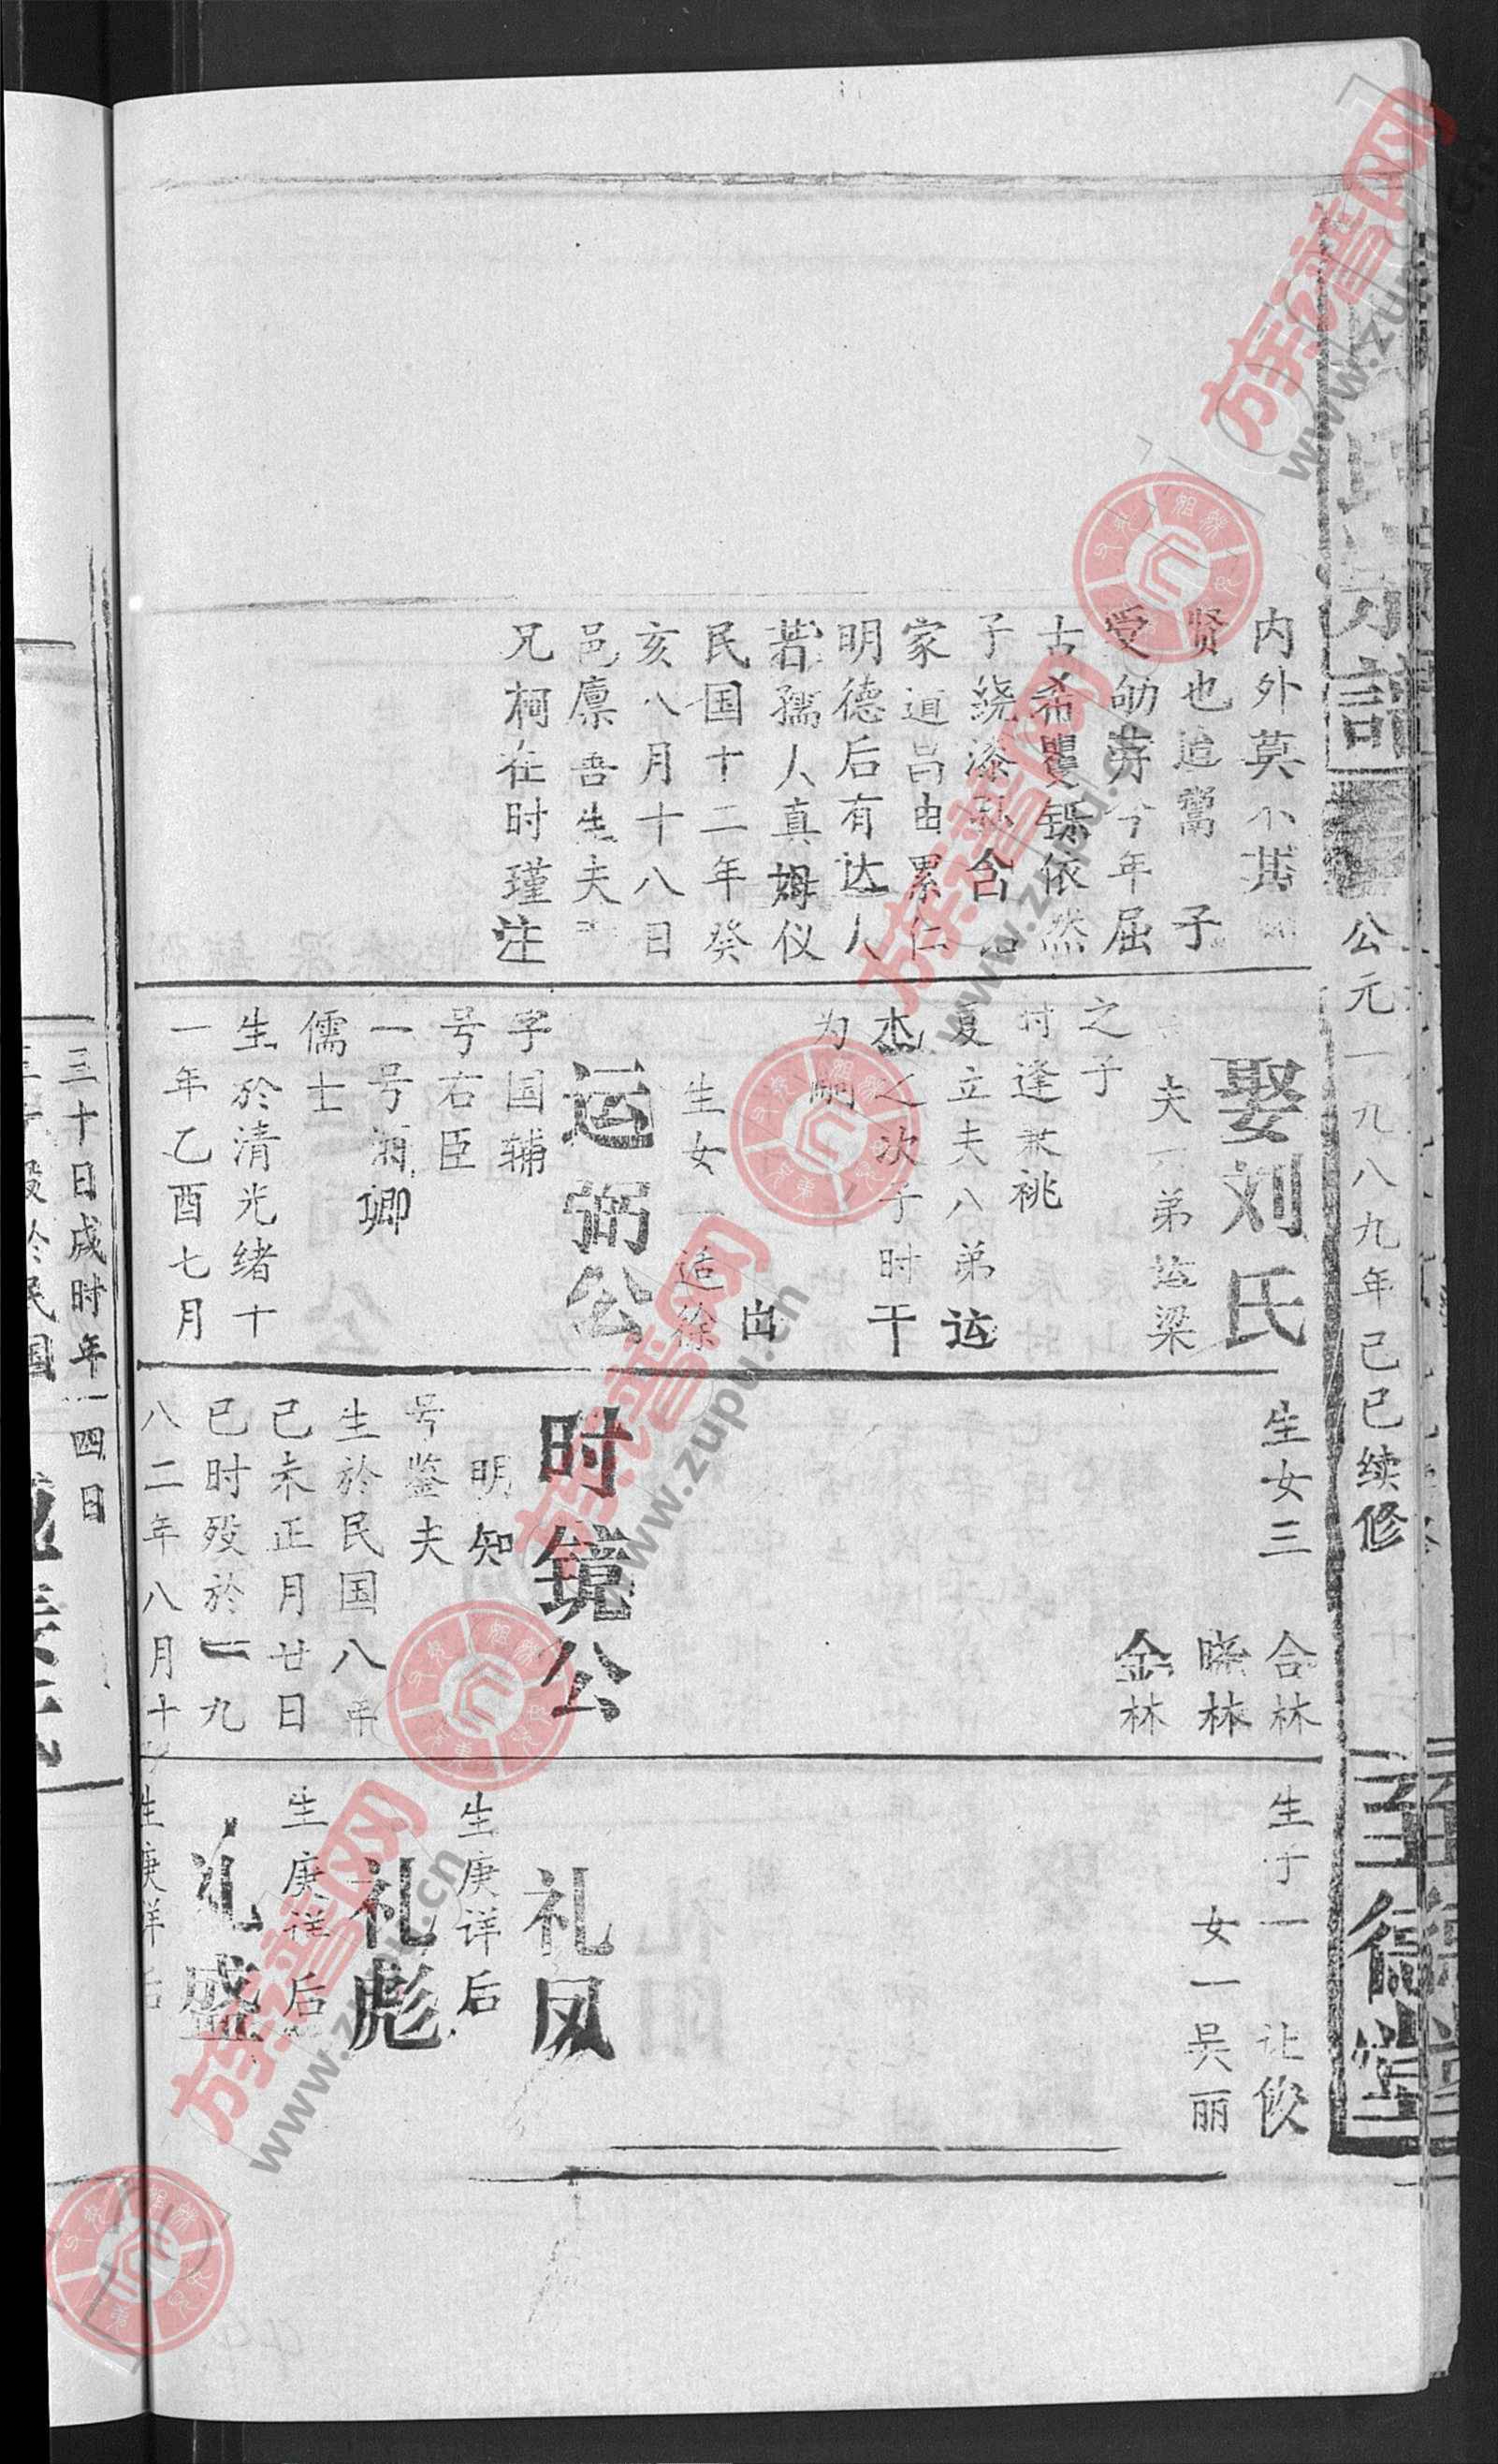 氏宗谱
公元一九八九年己巳续修
内外莫不其
贤也追嵩 子
受劬劳今年届
古希矍铄依然
子绕漆孙含
家道昌由累仁
明德后有达人
若孺人真姆仪
民国十二年癸
亥八月十八日
邑廪吾生夫
兄柯在时瑾注
娶刘氏
夫 弟运梁
之子
时逢兼祧
夏立夫八弟运
杰之次子时干
为嗣
出
生女一适徐
运弼公
字国辅
号右臣
一号 卿
儒士
生於清光绪十
一年乙酉七月
生女三 合林
晓林
金林
时镜公
明知
号鉴夫
生於民国八年
己未正月廿日
巳时殁於一九
八二年八月十
生子一 让俊
女一吴丽
礼凤
生庚详后
礼彪
生庚详后
礼盛
生庚详后
三十日戌时年一四日
殁於民国
www.zupu.cn
族谱网